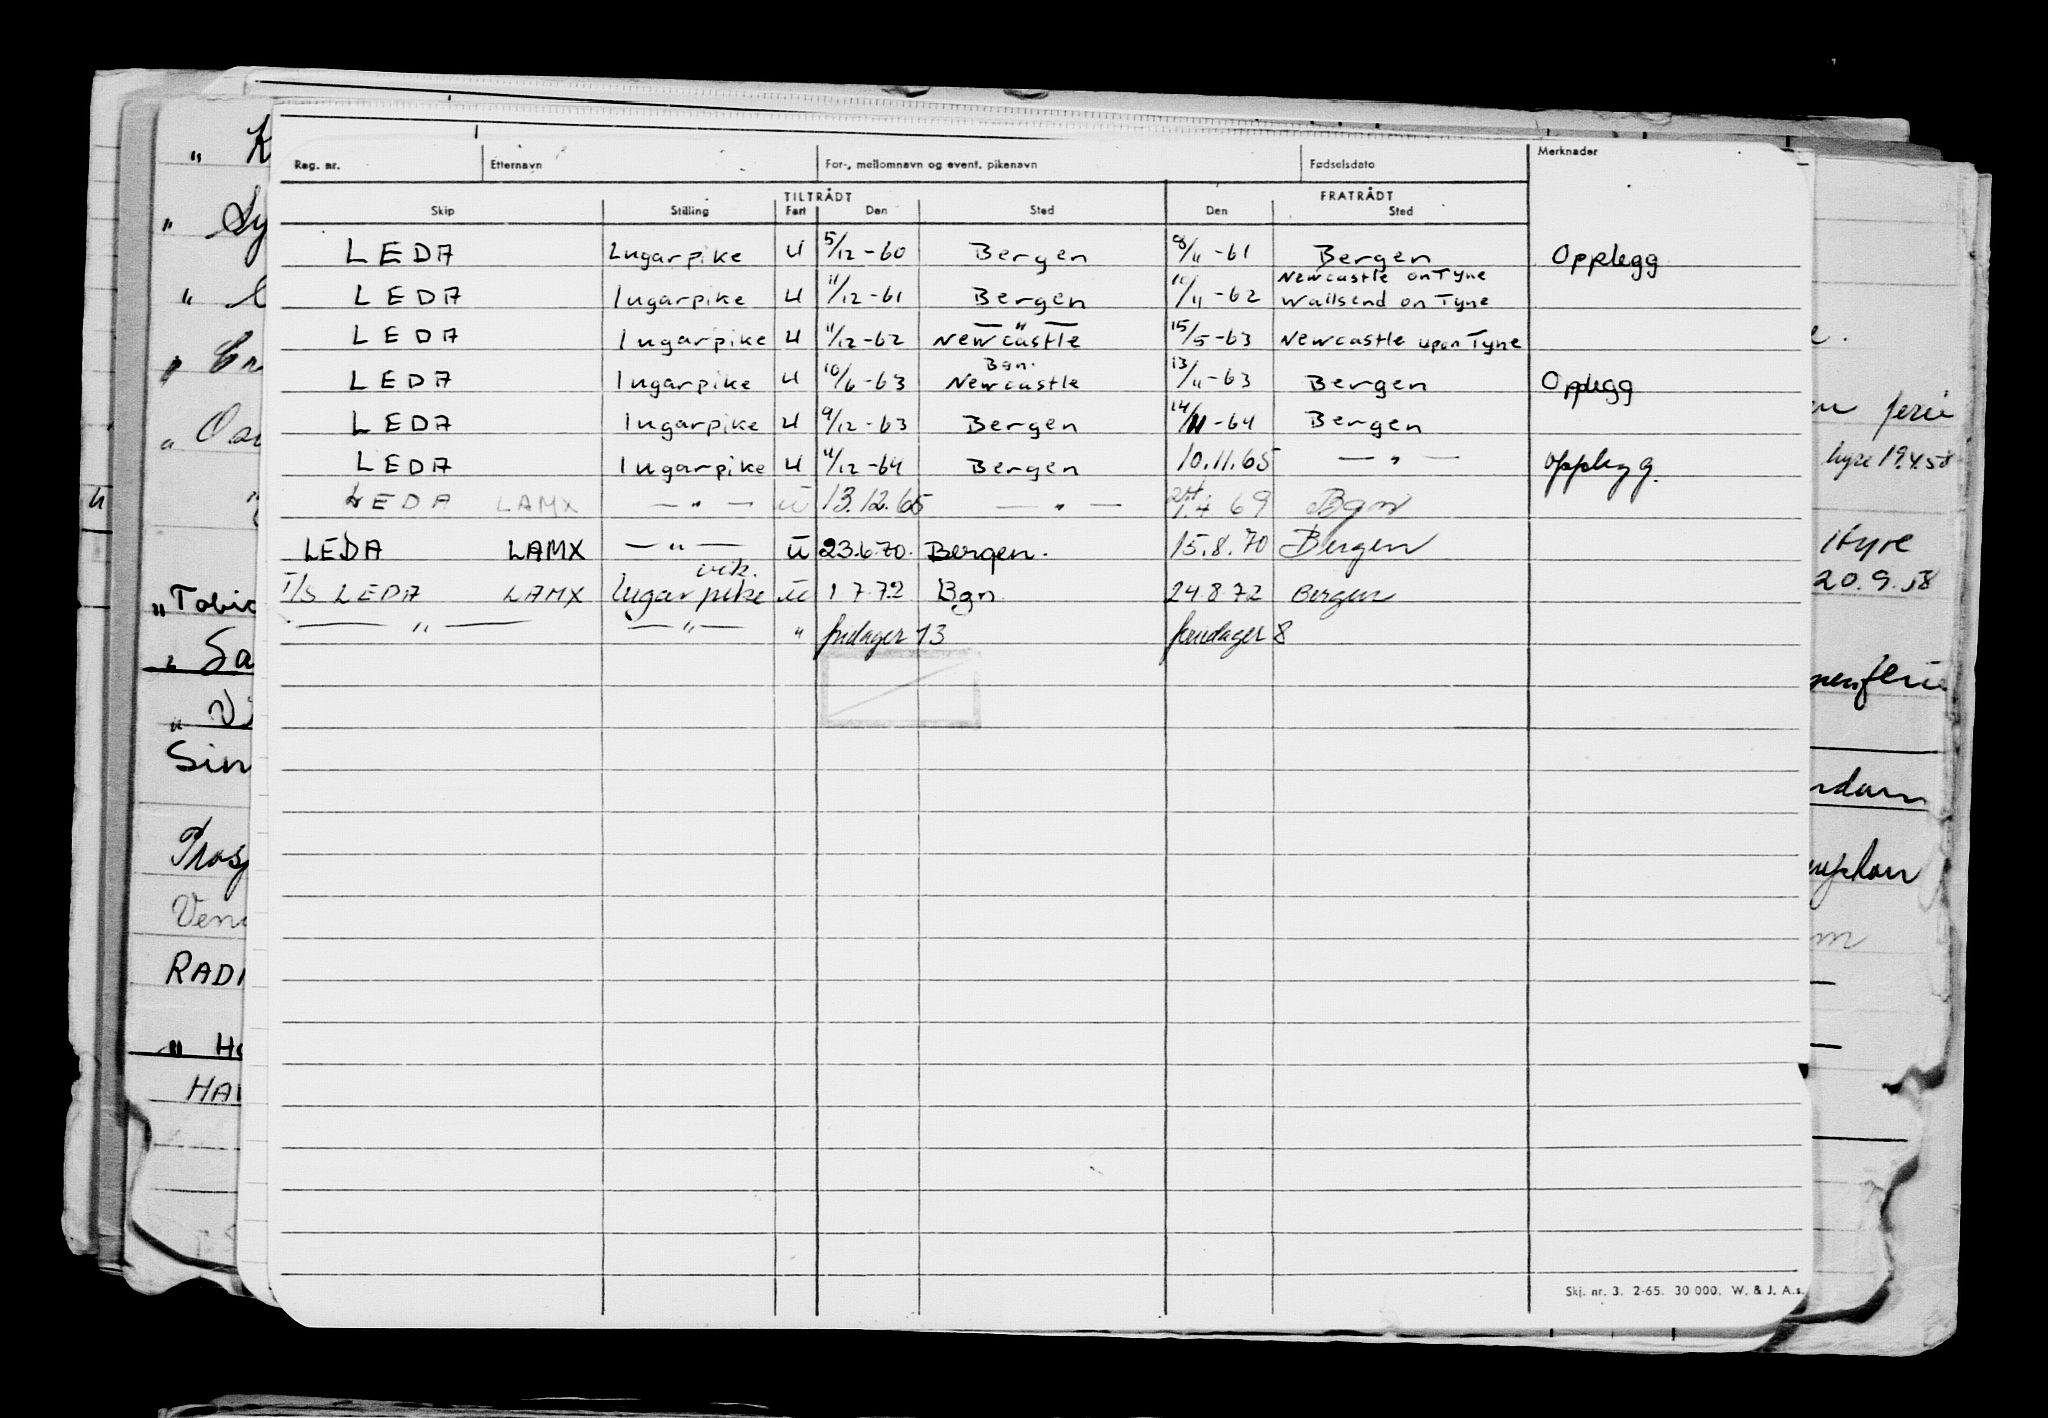 Reg. nr. Etternavn For-, mellomnavn og event. pikenavn Fødselsdato Merknader
TILTRÅDT FRATRÅDT
Skip Stilling Fart Den Sted Den Sted
LEDA Lugarpike U 5/12-60 Bergen 8/11-61 Bergen Opplegg
Newcastle on Tyne
LEDA lugarpike U 11/12-61 Bergen 10/11-62 Wallsend on Tyne
— " —
LEDA lugarpike U 11/12-62 Newcastle 15/5-63 Newcastle upon Tyne
Bgn.
LEDA lugarpike U 10/6-63 Newcastle 13/11-63 Bergen Opplegg
LEDA lugarpike U 9/12-63 Bergen 14/11-64 Bergen
LEDA lugarpike U 11/12-64 Bergen 10.11.65 — " — opplegg.
LEDA LAMX — " — U 13.12.65 — " — 69 Bgn
LEDA LAMX — " — U 23.6.70. Bergen. 15.8.70 Bergen
vik.
T/S LEDA LAMX lugarpike U 1.7.72 Bgn 24.8.72 Bergen
— " — — " — " fridager 13 feriedager 8
Skj. nr. 3. 2-65. 30 000. W. & J. A.s.
" K
" Sy
"
"
" Os
"Tobia
" Sa
"
Sin
Prosp
Ven
RADI
" Ha
HAV
u
e.
en ferie
hyre 19.4.58
Hyre
20.9.58
ferie
ndam
m